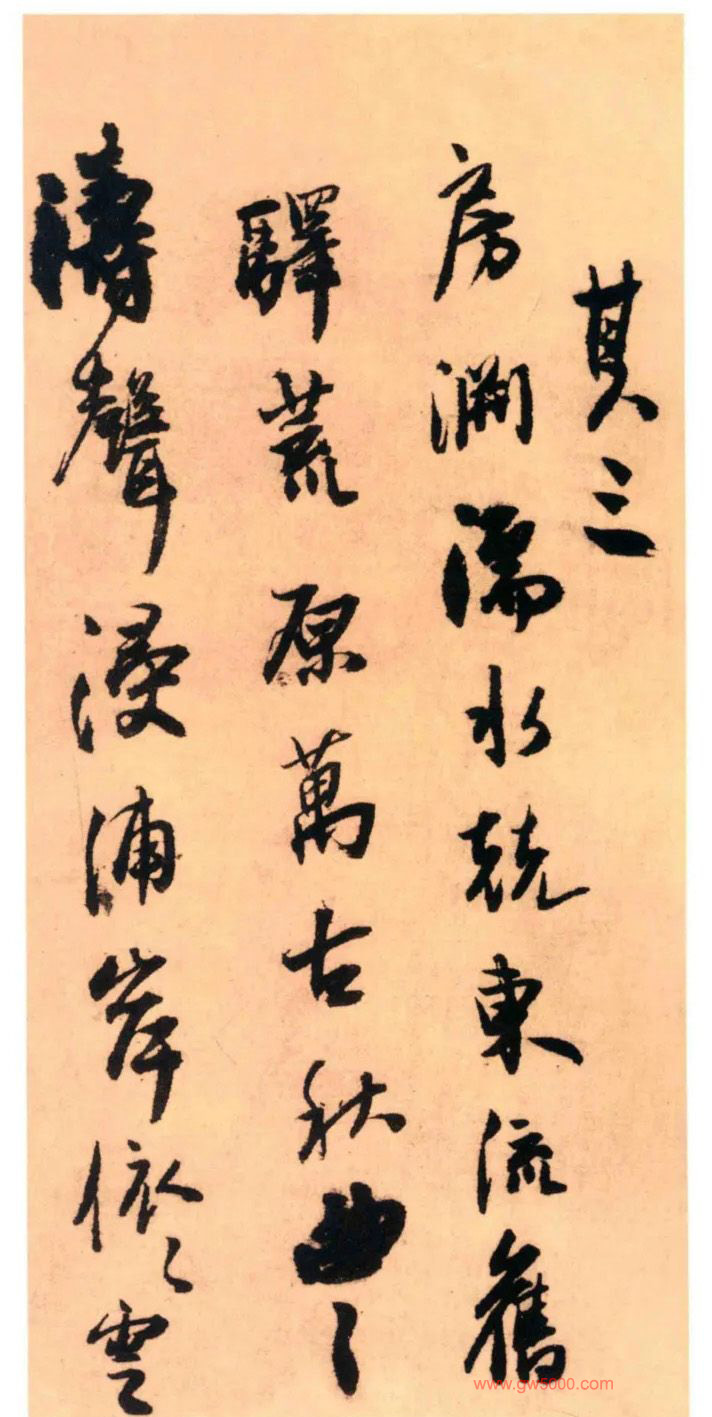 其三
房淵濡水競東流舊
驛荒原萬古秋曲〻
濤聲浸浦岸依〻雲
www.gw5000.com